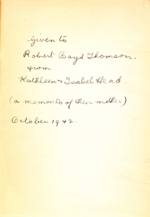 Given to
Robert Boyd Thomson.
from
Kathleen & Isabel Head
(a memento of their mother)
October 1942.